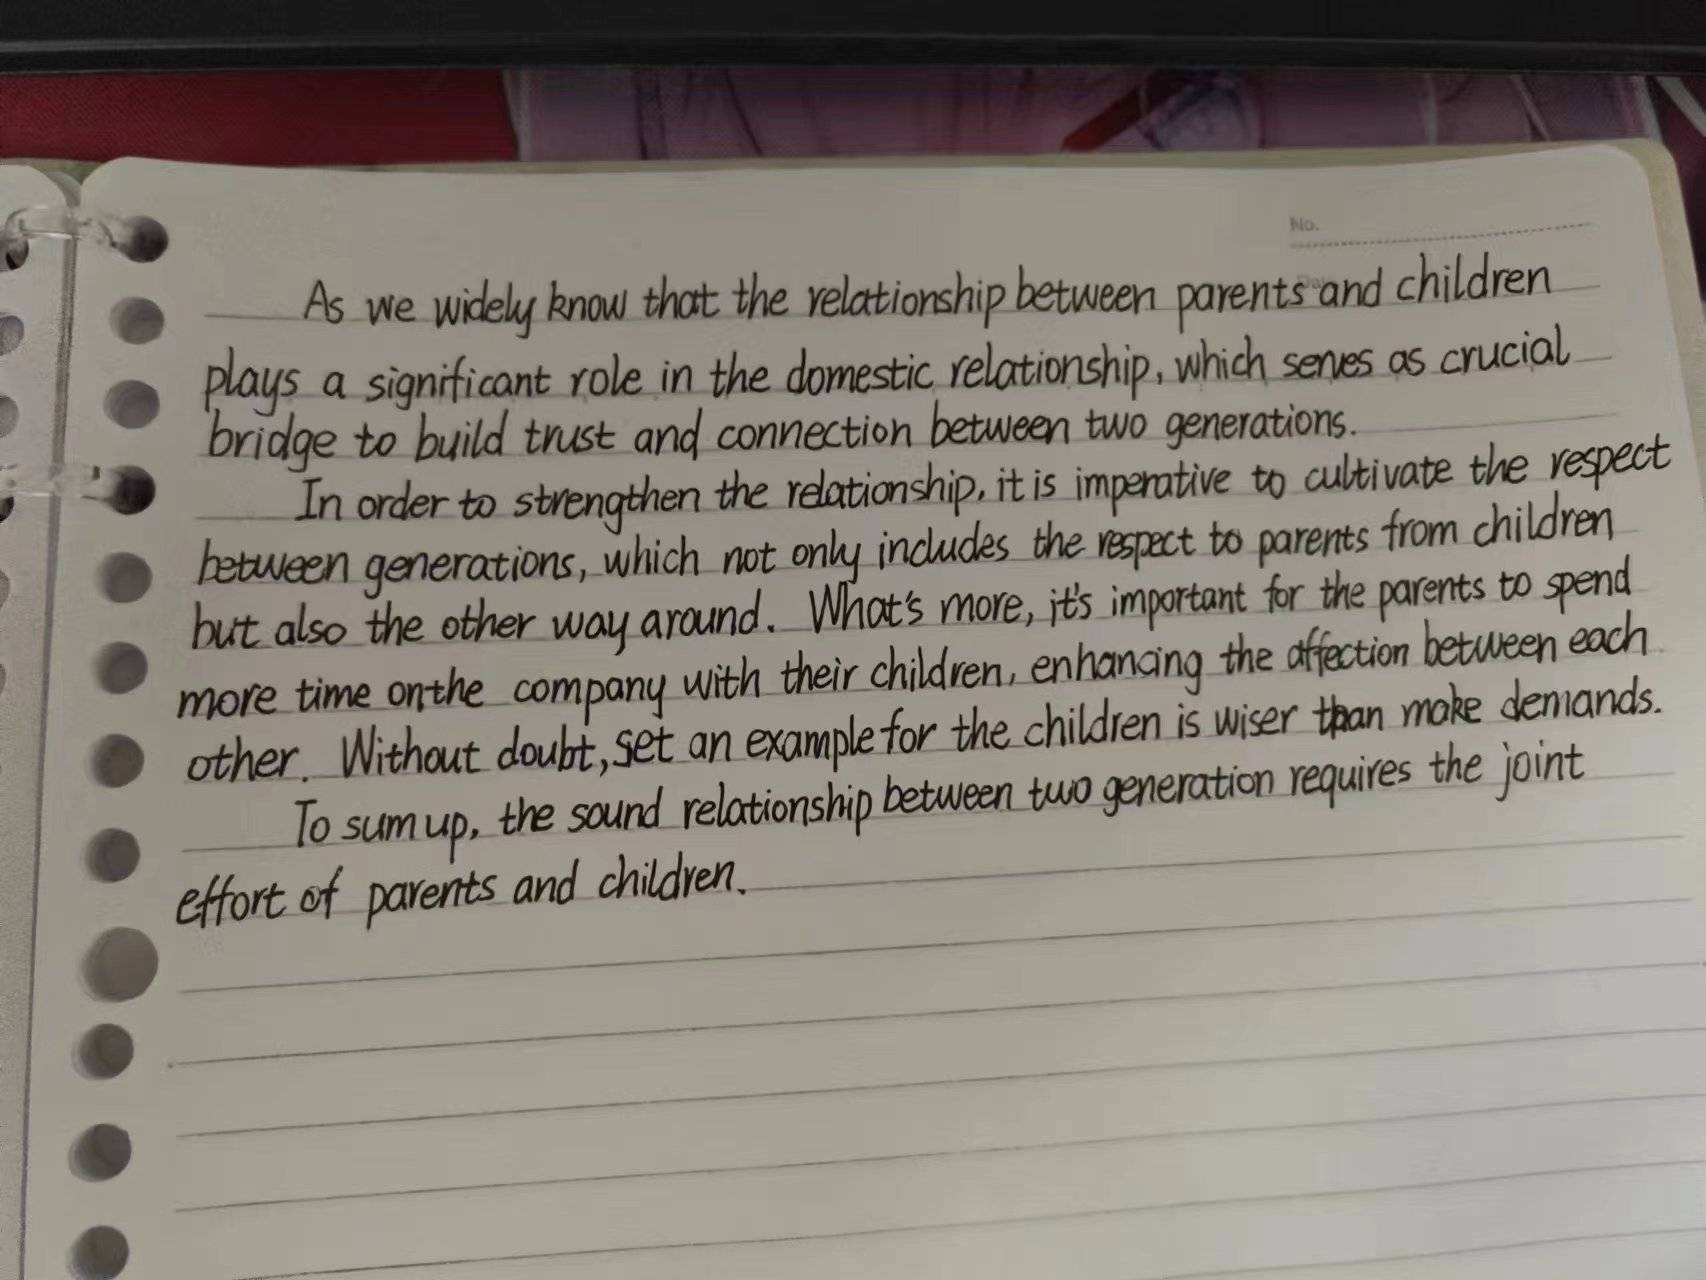 No.
As we widely know that the relationship between parents and children
plays a significant role in the domestic relationship, which serves as crucial
bridge to build trust and connection between two generations.
In order to strengthen the relationship, it is imperative to cultivate the respect
between generations, which not only includes the respect to parents from children
but also the other way around. What's more, it's important for the parents to spend
more time on the company with their children, enhancing the affection between each
other. Without doubt, set an example for the children is wiser than make demands.
To sum up, the sound relationship between two generation requires the joint
effort of parents and children.